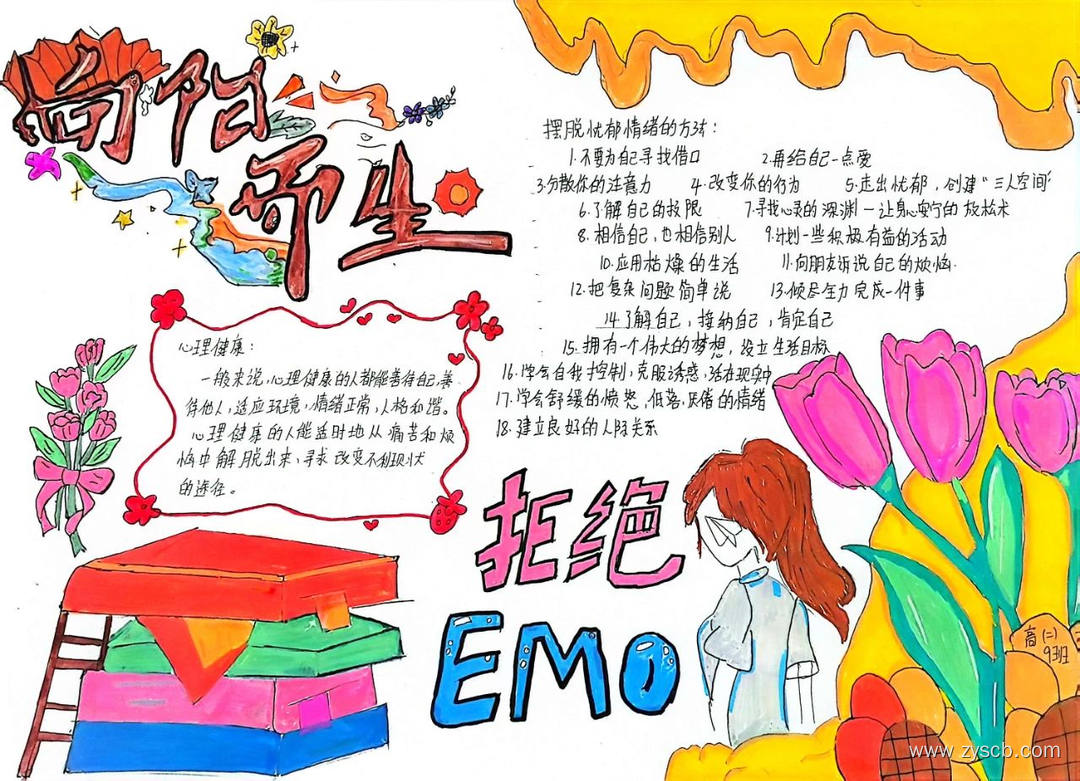 向阳而生
心理健康：
一般来说,心理健康的人都能善待自己,善
待他人,适应环境,情绪正常,人格和谐。
心理健康的人能适时地从痛苦和烦
恼中解脱出来、寻求改变不利现状
的途径。
摆脱忧郁情绪的方法：
1.不要为自己寻找借口 2.再给自己一点爱
3.分散你的注意力 4.改变你的行为 5.走出忧郁,创建“三人空间”
6.了解自己的极限 7.寻找心灵的深渊一让身心安宁的放松术
8.相信自己,也相信别人 9.计划一些积极有益的活动
10.应用枯燥的生活 11.向朋友诉说自己的烦恼.
12.把复杂问题简单说 13.倾尽全力完成一件事
14.了解自己,接纳自己,肯定自己
15.拥有一个伟大的梦想,设立生活目标
16.学会自我控制,克服诱惑,活在现实中
17.学会舒缓的愤怒,低落,畏惧的情绪
18.建立良好的人际关系
拒绝
EMO
高(二)
9班
www.zyscb.com